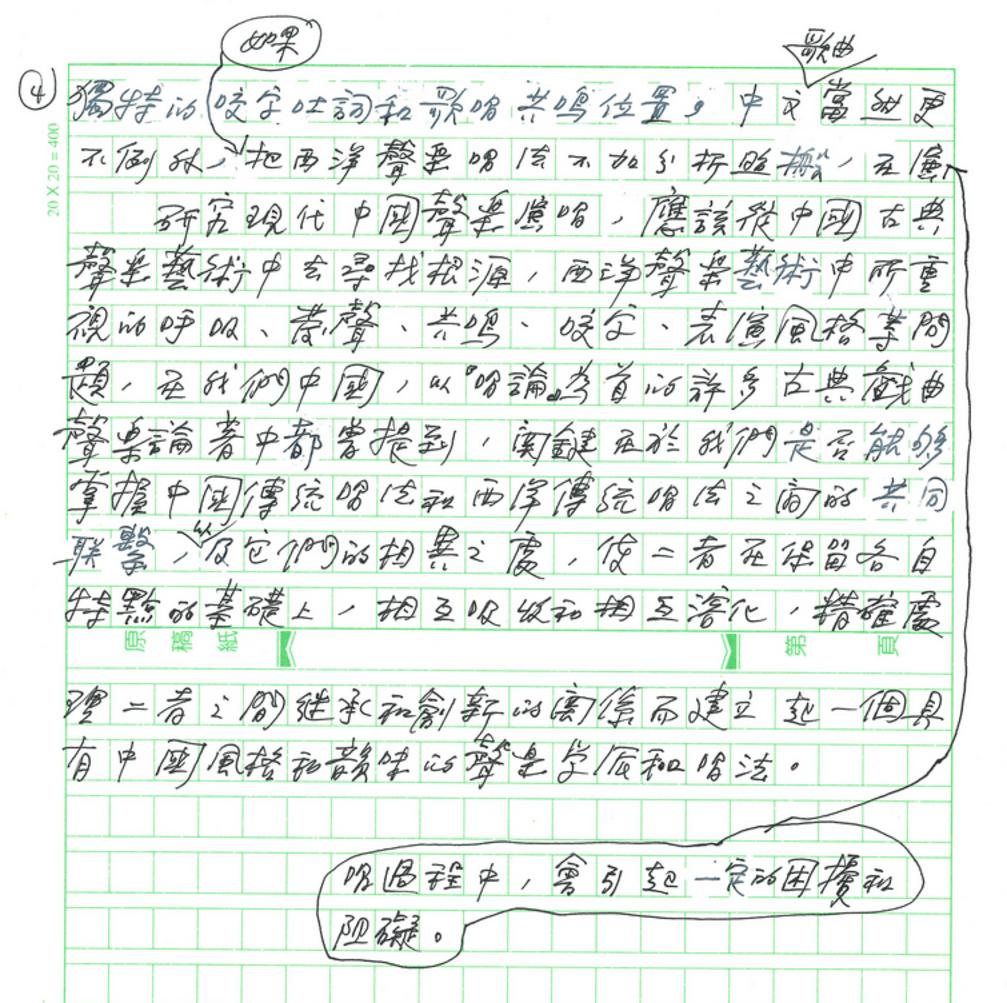 如果
歌曲
④
獨特的咬字吐詞和歌唱共鳴位置，中文當然更
不例外，把西洋聲樂唱法不加分析照搬，在演
20 X 20 = 400
研究現代中國聲樂演唱，應該從中國古典
聲樂藝術中去尋找根源，西洋聲樂藝術中所重
視的呼吸、發聲、共鳴、咬字、表演風格等問
題，在我們中國，以『唱論』為首的許多古典戲曲
聲樂論著中都曾提到，關鍵在於我們是否能够
掌握中國傳統唱法和西洋傳統唱法之間的共同
联繫，以及它們的相異之處，使二者在保留各自
特點的基礎上，相互吸收和相互溶化，精確處
原稿紙 第 頁
理二者之間継承和創新的関係而建立起一個具
有中國風格和韻味的聲樂学派和唱法。
唱過程中，會引起一定的困擾和
阻礙。